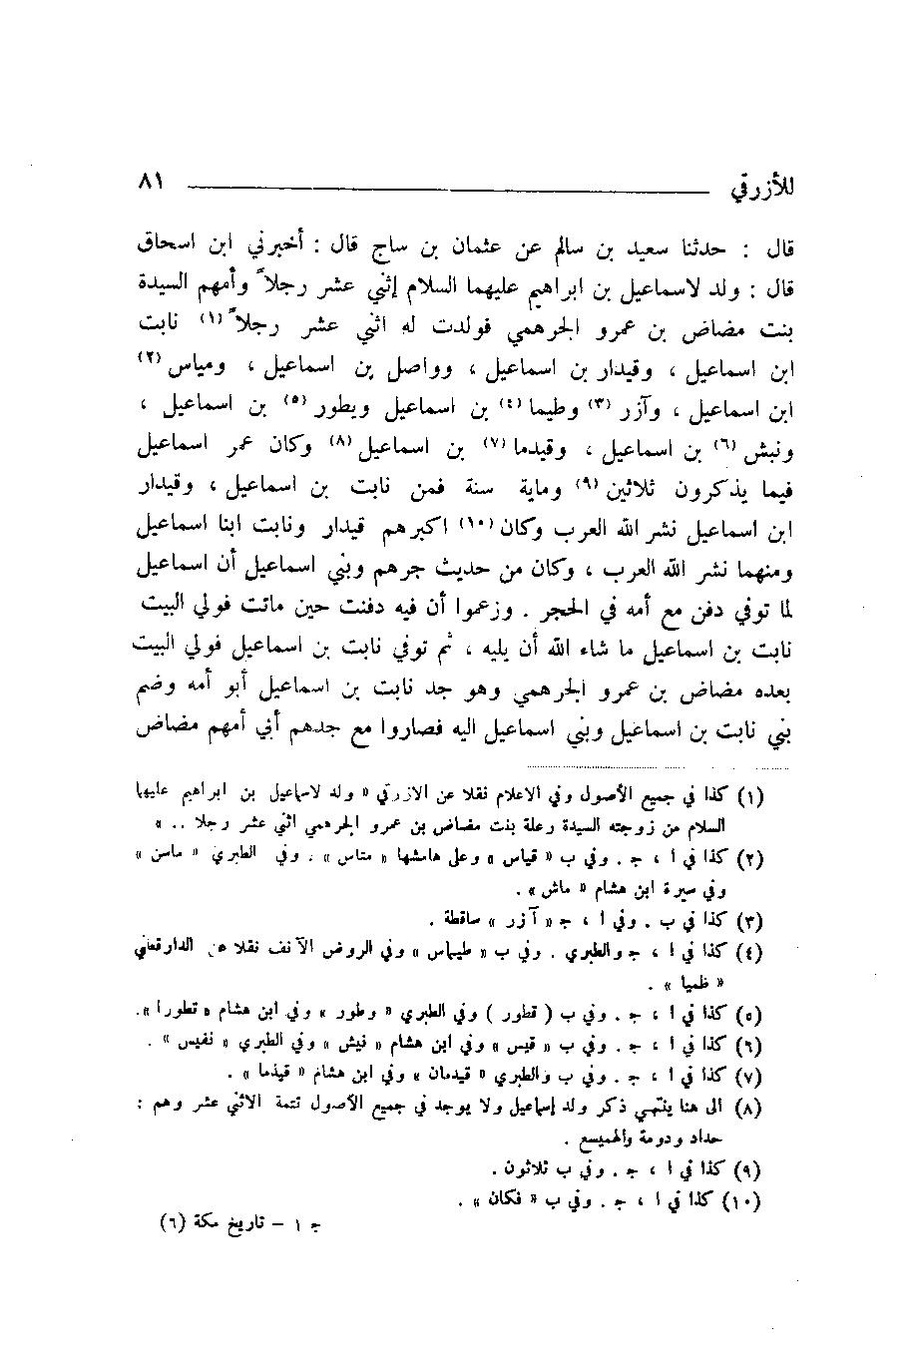 للأزرقي ٨١
قال : حدثنا سعيد بن سالم عن عثمان بن ساج قال : أخبرني ابن اسحاق
قال : ولد لاسماعيل بن ابراهيم عليهما السلام إثني عشر رجلاً وأمهم السيدة
بنت مضاض بن عمرو الجرهمي فولدت له اثني عشر رجلاً (١) نابت
ابن اسماعيل ، وقيدار بن اسماعيل ، وواصل بن اسماعيل ، ومياس (٢)
ابن اسماعيل ، وآزر (٣) وطيما (٤) بن اسماعيل ويطور (٥) بن اسماعيل ،
ونبش (٦) بن اسماعيل ، وقيدما (٧) بن اسماعيل (٨) وكان عمر اسماعيل
فيما يذكرون ثلاثين (٩) وماية سنة فمن نابت بن اسماعيل ، وقيدار
ابن اسماعيل نشر الله العرب وكان (١٠) اكبرهم قيدار ونابت ابنا اسماعيل
ومنهما نشر الله العرب ، وكان من حديث جرهم وبني اسماعيل أن اسماعيل
لما توفي دفن مع أمه في الحجر . وزعموا أن فيه دفنت حين ماتت فولي البيت
نابت بن اسماعيل ما شاء الله أن يليه ، ثم توفي نابت بن اسماعيل فولي البيت
بعده مضاض بن عمرو الجرهمي وهو جد نابت بن اسماعيل أبو أمه وضم
بني نابت بن اسماعيل وبني اسماعيل اليه فصاروا مع جدهم أبي أمهم مضاض
(١) كذا في جميع الأصول وفي الاعلام نقلا عن الازرقي « ولد لاسماعيل بن ابراهيم عليهما
السلام من زوجته السيدة رعلة بنت مضاض بن عمرو الجرهمي اثني عشر رجلا .. »
(٢) كذا في أ ، ج . وفي ب « قياس » وعلى هامشها « متاس » . وفي الطبري « ماسن »
وفي سيرة ابن هشام « ماش » .
(٣) كذا في ب . وفي أ ، ج « آزر » ساقطة .
(٤) كذا في أ ، ج والطبري . وفي ب « طيماس » وفي الروض الآنف نقلا عن الدارقطني
« ظميا » .
(٥) كذا في أ ، ج . وفي ب ( قطور ) وفي الطبري « وطور » وفي ابن هشام « تطورا ».
(٦) كذا في أ ، ج . وفي ب « قيس » وفي ابن هشام « نيش » وفي الطبري « نفيس » .
(٧) كذا في أ ، ج . وفي ب والطبري « قيدمان » وفي ابن هشام « قيذما » .
(٨) الى هنا ينتهي ذكر ولد إسماعيل ولا يوجد في جميع الأصول تتمة الاثني عشر وهم :
حداد ودومة والهميسع .
(٩) كذا في أ ، ج . وفي ب ثلاثون .
(١٠) كذا في أ ، ج . وفي ب « فكان » .
ج ١ – تاريخ مكة (٦)